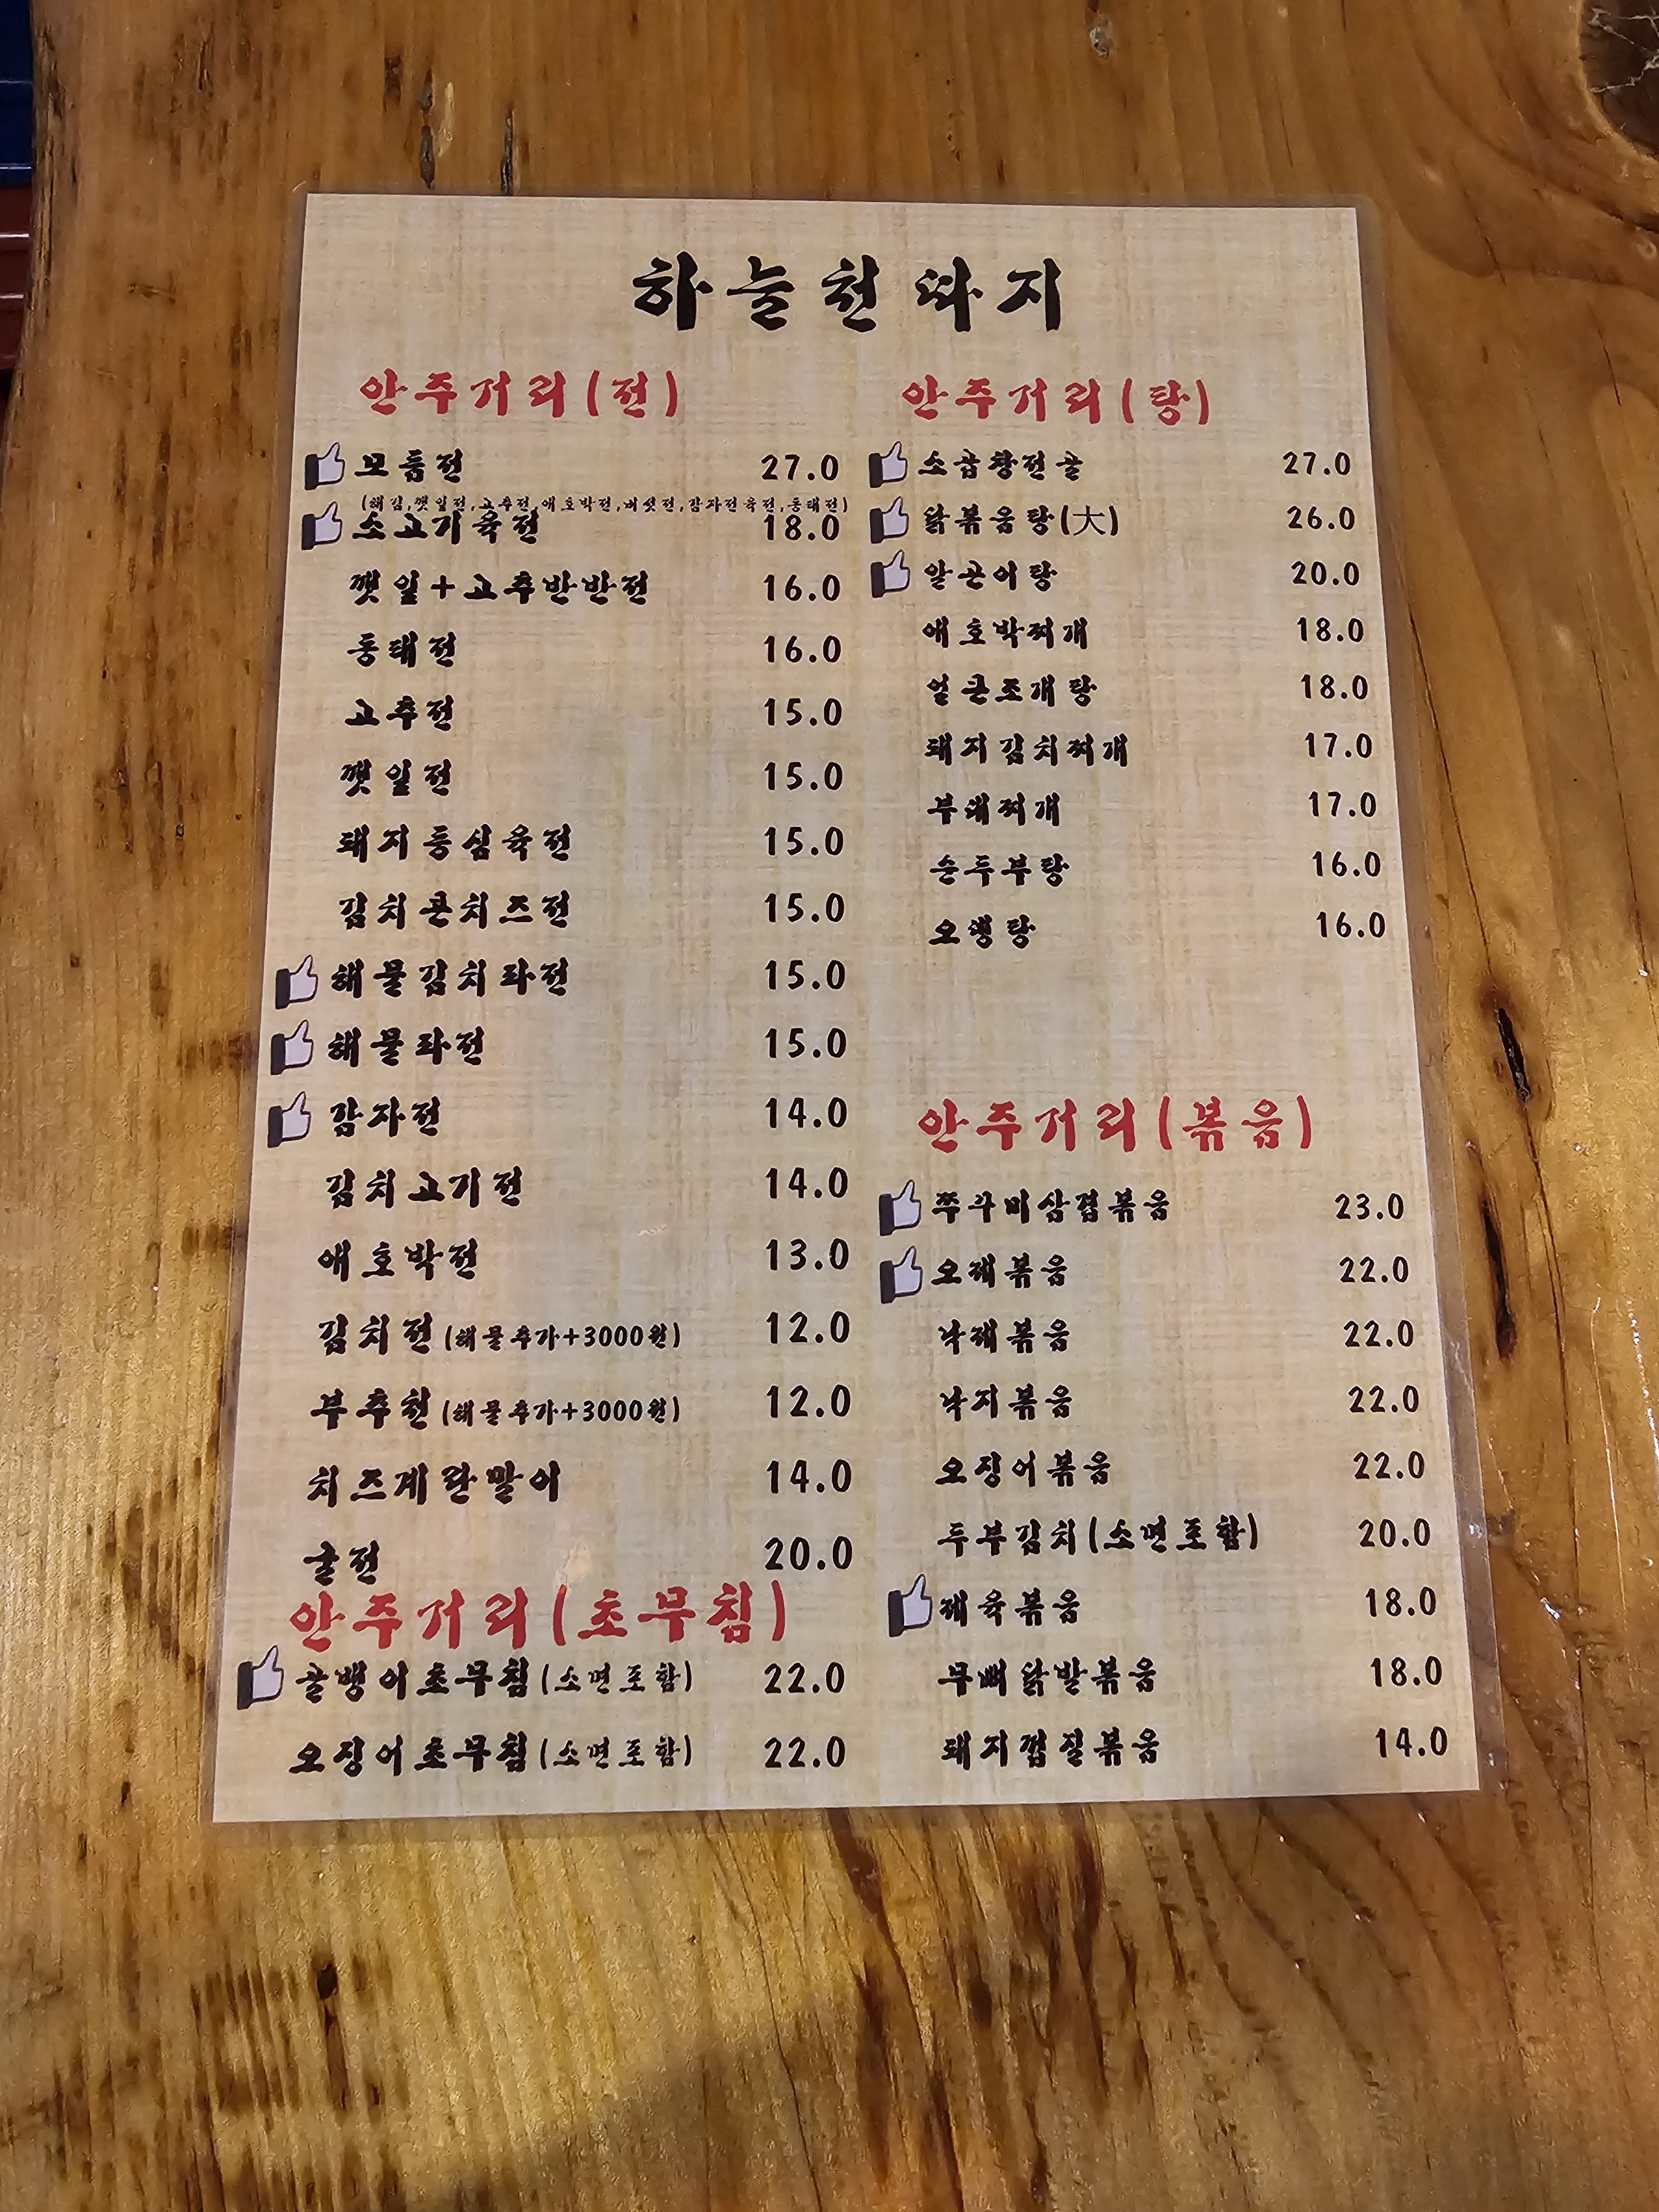 하늘천따지
안주거리(전)
모듬전 27.0
(해김,깻잎전,고추전,애호박전,버섯전,감자전육전,동태전)
소고기육전 18.0
깻잎+고추반반전 16.0
동태전 16.0
고추전 15.0
깻잎전 15.0
돼지등심육전 15.0
김치콘치즈전 15.0
해물김치파전 15.0
해물파전 15.0
감자전 14.0
김치고기전 14.0
애호박전 13.0
김치전(해물추가+3000원) 12.0
부추전(해물추가+3000원) 12.0
치즈계란말이 14.0
굴전 20.0
안주거리(초무침)
골뱅이초무침(소면포함) 22.0
오징어초무침(소면포함) 22.0
안주거리(탕)
소곱창전골 27.0
닭볶음탕(大) 26.0
알곤이탕 20.0
애호박찌개 18.0
얼큰조개탕 18.0
돼지김치찌개 17.0
부대찌개 17.0
순두부탕 16.0
오뎅탕 16.0
안주거리(볶음)
쭈꾸미삼겹볶음 23.0
오제볶음 22.0
낙제볶음 22.0
낙지볶음 22.0
오징어볶음 22.0
두부김치(소면포함) 20.0
제육볶음 18.0
무뼈닭발볶음 18.0
돼지껍질볶음 14.0